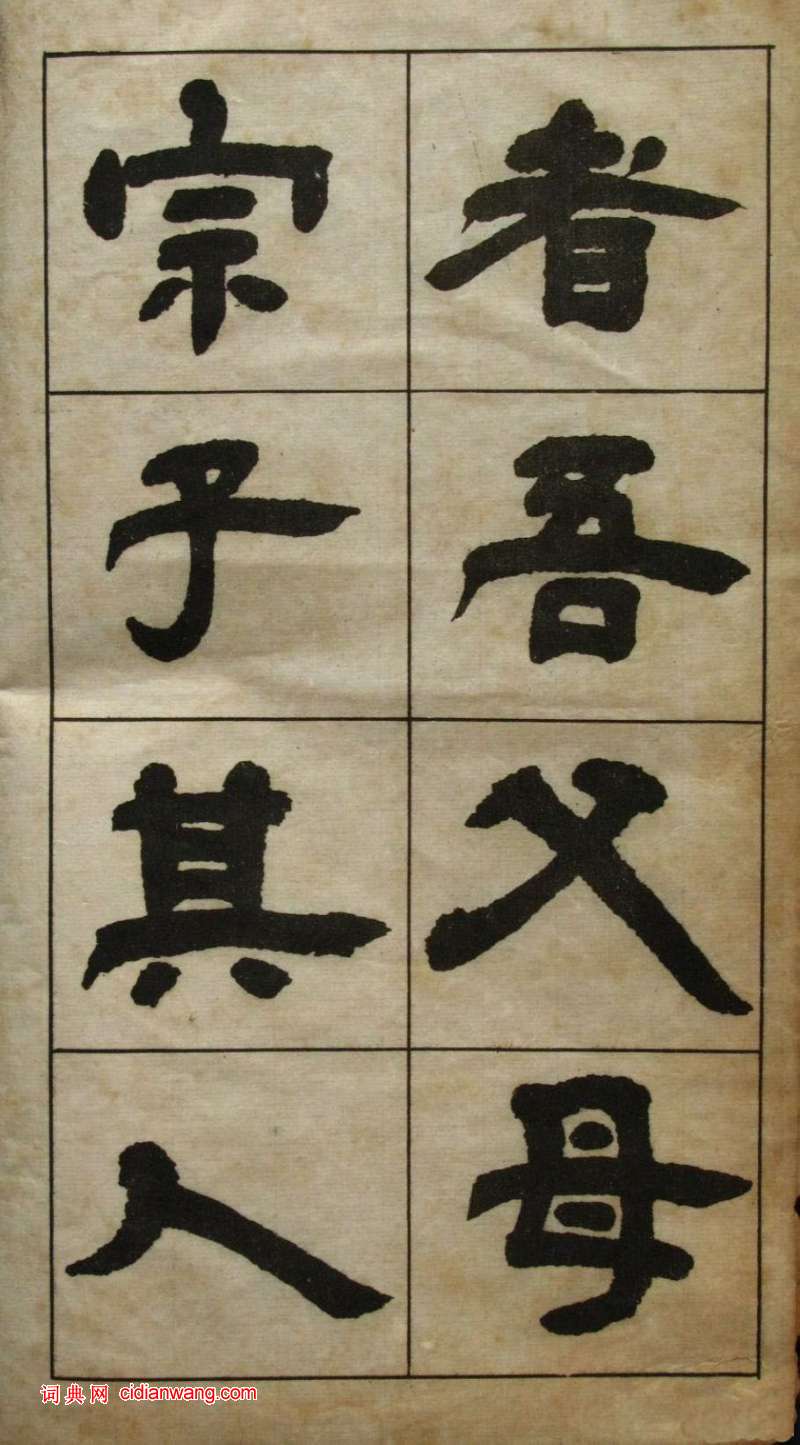 者吾父母
宗子其人
词典网 cidianwang.com